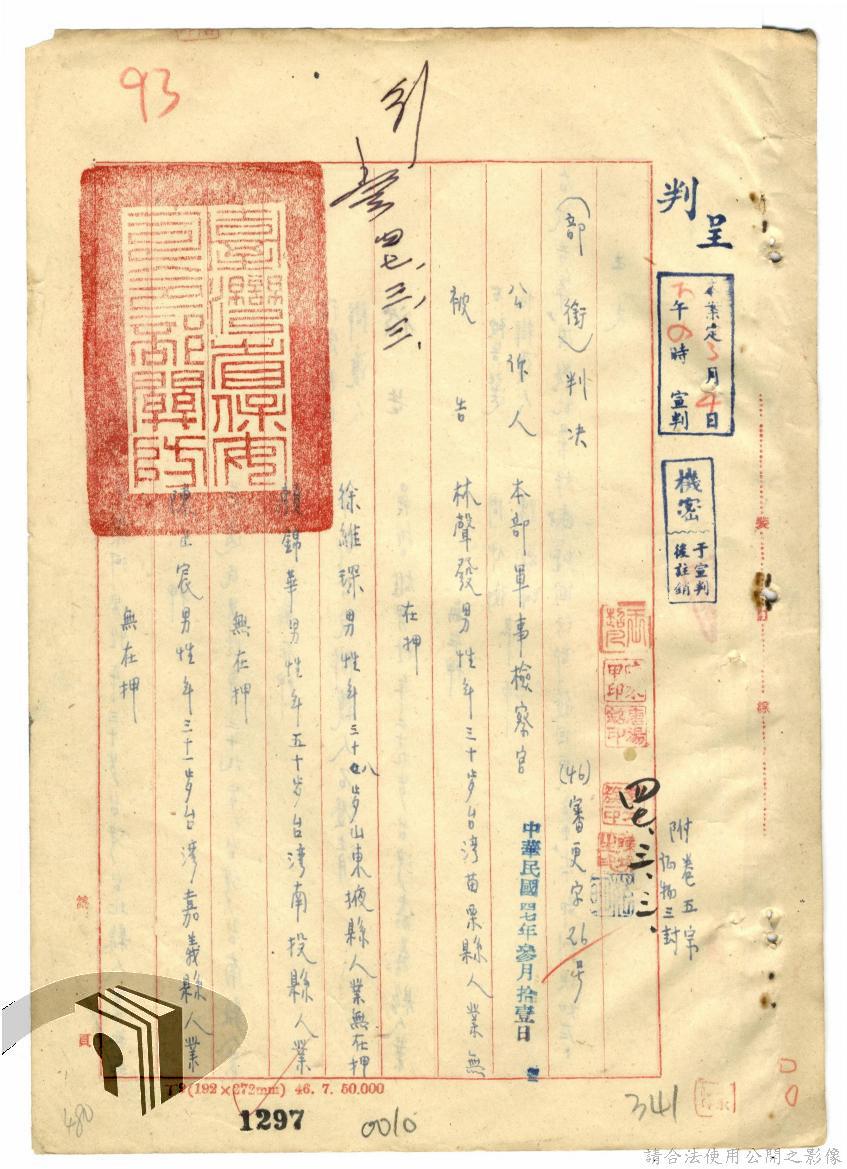 93
判
呈
本案定3月4日
下午 時宣判
機密
于宣判後註銷
附卷五宗
证物三封
四七、三、三、
(46)審更字26号
(部銜)判决
中華民國四七年參月拾壹日
公訴人 本部軍事檢察官
被告 林聲發男性年三十歲台湾苗栗縣人業無
在押
徐維琛男性年三十八歲山東掖縣人業無在押
賴錦華男性年五十歲台湾南投縣人業
無在押
陳 宸男性年三十一歲台湾嘉義縣人業
無在押
四七、三、三、
臺灣省保安司令部關防
裝
訂
線
總
頁
(192×272mm) 46. 7. 50.000
1297
0010
341
480
請合法使用公開之影像